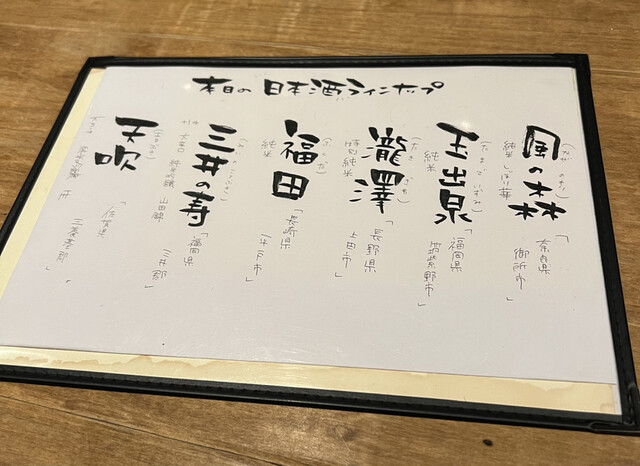 本日の日本酒ラインナップ
風の森
純米
「奈良県
御所市」
玉出泉
純米
「福岡県
筑紫野市」
瀧澤
純米
「長野県
上田市」
福田
純米
「長崎県
平戸市」
三井の寿
大辛口 純米吟醸 山田錦
「福岡県
三井郡」
天吹
「佐賀県
三養基郡」